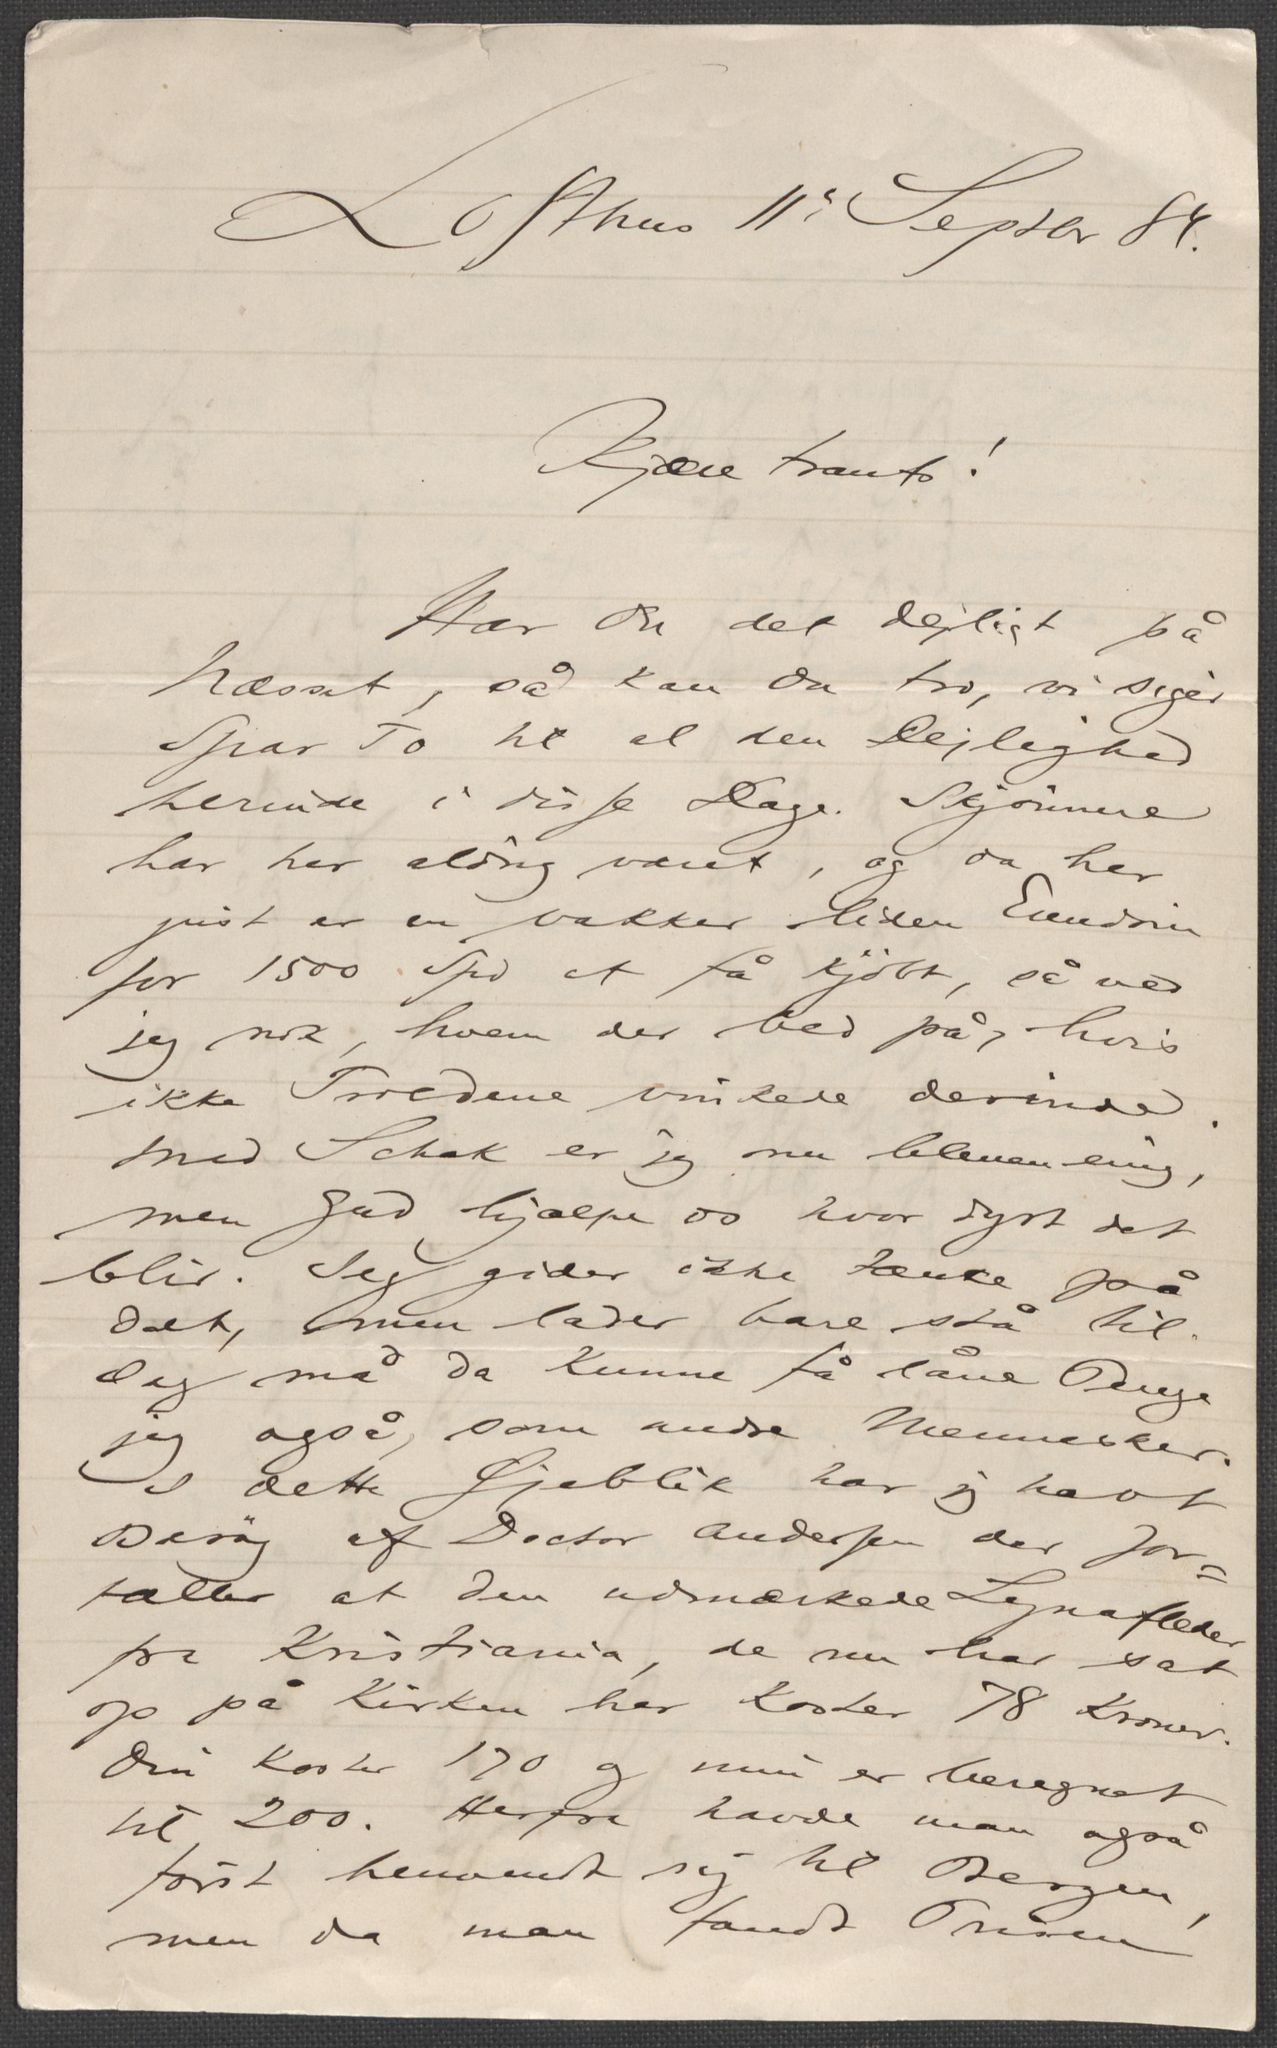 Lofthus 11. Septbr 84.
Kjære Frants!
Har du det dejligt på
Næsset, så kan du tro, vi siger
Spar To til al den Dejlighed
herinde i disse Dage. Skjönnere
har her aldrig været, og da her
just er en vakker liden Eiendom
for 1500 Spd at få kjöbt, så ved
jeg nok, hvem der bed på, hvis
ikke Troldene vinkede derinde.
Med Schak er jeg nu bleven enig,
men Gud hjælpe os hvor dyrt det
blir. Jeg gider ikke tænke på
det, men lader bare stå til.
Jeg må da kunne få låne Penge
jeg også, som andre Mennesker.
I dette Øjeblik har jeg havt
Besög af Doctor Andersen der for=
tæller at den udmærkede Lynafleder
fra Kristiania, de nu har sat
op på Kirken her koster 78 Kroner.
Din koster 170 og min er beregnet
til 200. Herfra havde man også
först henvendt sig til Bergen,
men da man fandt Prisen